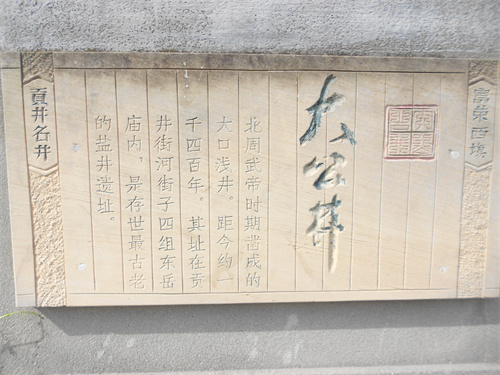 富榮西場
大公井
北周武帝时期凿成的
大口浅井。距今约一
千四百年。其址在贡
井街河街子四组东岳
庙内，是存世最古老
的盐井遗址。
貢井名井